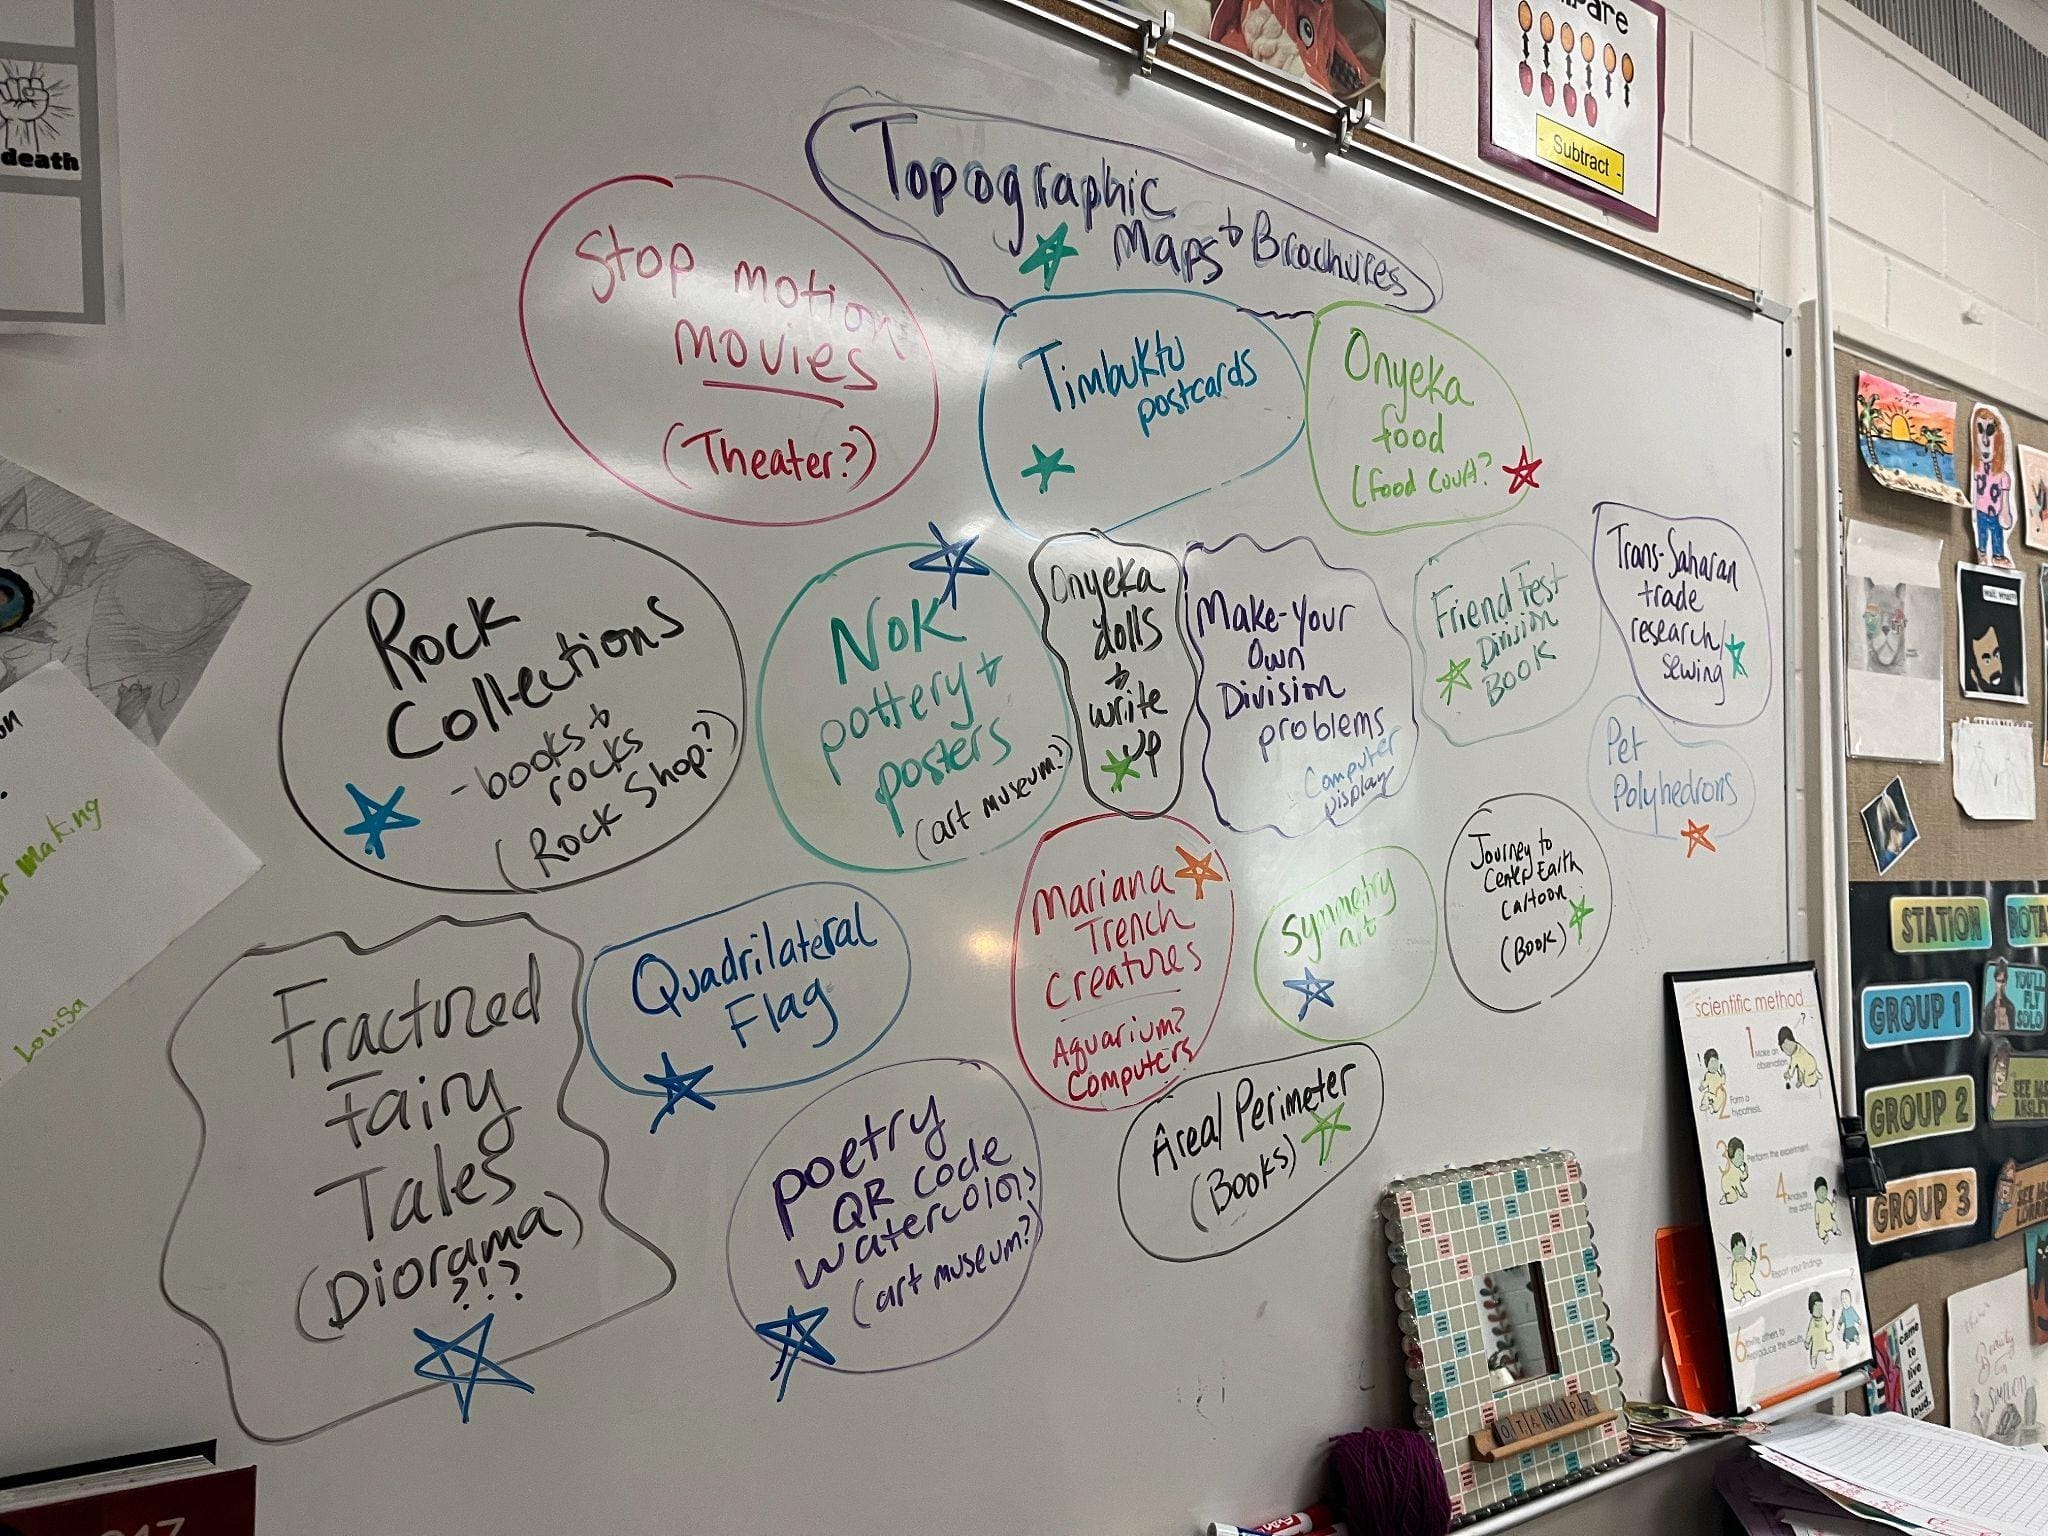 death
Compare
- Subtract -
Topographic
Maps + Brochures
Stop motion
movies
(Theater?)
Timbuktu
postcards
Onyeka
food
(food court?
Rock
Collections
- books +
rocks
(Rock Shop?)
Nok
pottery +
posters
(art museum?)
Onyeka
dolls
+
write
up
Make-Your
Own
Division
problems
Computer
Display
Friend Test
Division
Book
Trans-Saharan
trade
research/
sewing
Pet
Polyhedrons
Fractured
Fairy
Tales
(Diorama)
?!?
Quadrilateral
Flag
Mariana
Trench
Creatures
Aquarium?
Computers
Symmetry
art
Journey to
Center Earth
Cartoon
(Book)
poetry
QR code
watercolors
(art museum?)
Area/Perimeter
(Books)
Making
Louisa
OTANIPZ
scientific method
1 Make an
observation
2 Form a
hypothesis.
3 Perform the experiment.
4 Analyze
the data.
5 Report your findings.
6 Invite others to
reproduce the results.
STATION
ROTA
GROUP 1
YOU'LL
FLY
SOLO
GROUP 2
SEE MS
GROUP 3
SEE MS
I
came
to
live
out
loud.